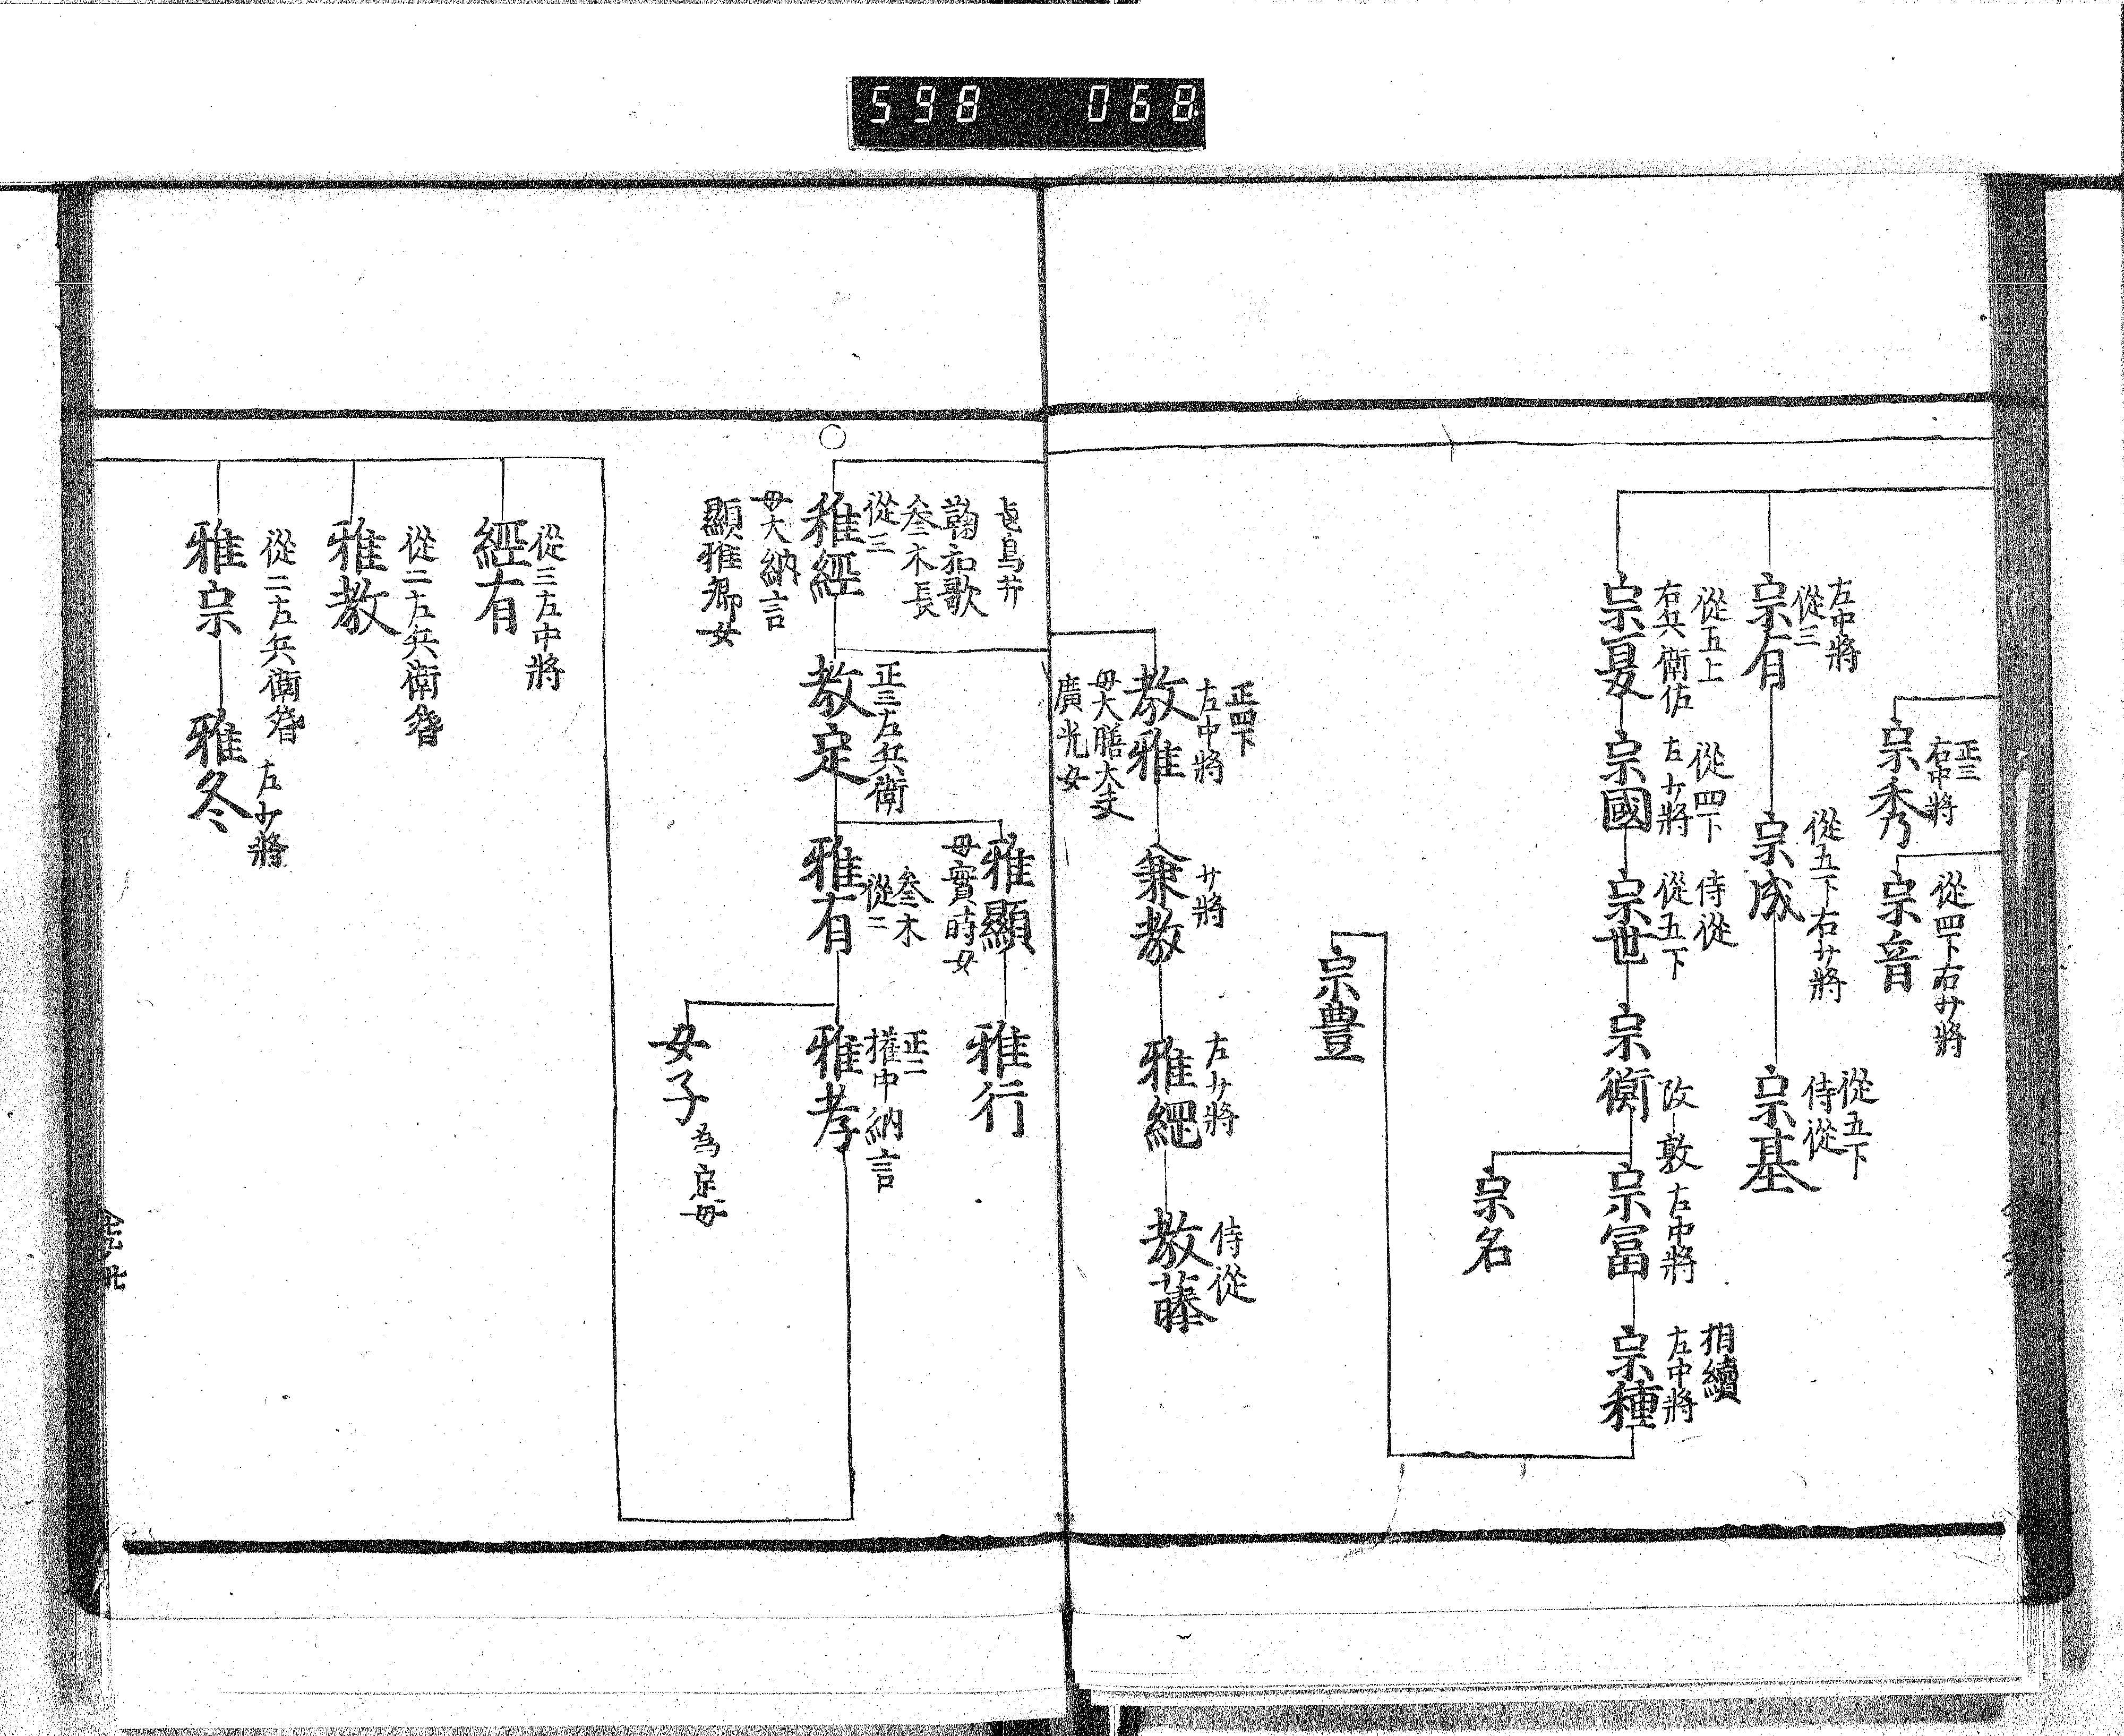 598 068
正三
右中將
宗秀
從四下右少將
宗音
左中將
從三
宗有
從五下右少將
宗成
從五下
侍從
宗基
從五上
右兵衛佐
宗夏
從四下
左少將
宗國
侍從
從五下
宗世
宗衡
改敦
右中將
宗冨
相續
左中將
宗種
宗名
宗豊
正四下
左中將
教雅
母大膳大夫
廣光女
少將
兼教
左少將
雅經
侍從
教藤
飛鳥井
鞠和歌
叅木長
從三
雅經
母大納言
顯雅卿女
正三左兵衛
教定
雅顯
母實時女
雅行
叅木
從二
雅有
正二
權中納言
雅孝
女子
為定母
從三左中將
經有
從二左兵衛督
雅教
從二左兵衛督
雅宗
左少將
雅冬